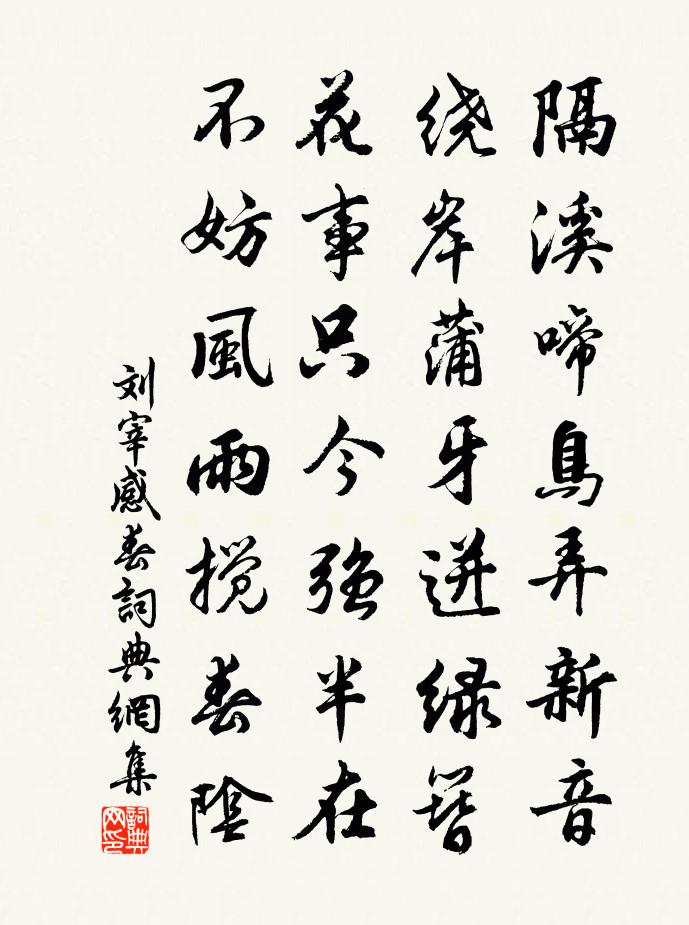 隔溪啼鳥弄新音
绕岸蒲牙迸緑簪
花事只今强半在
不妨風雨搅春陰
刘宰感春詞典網集
詞典网印